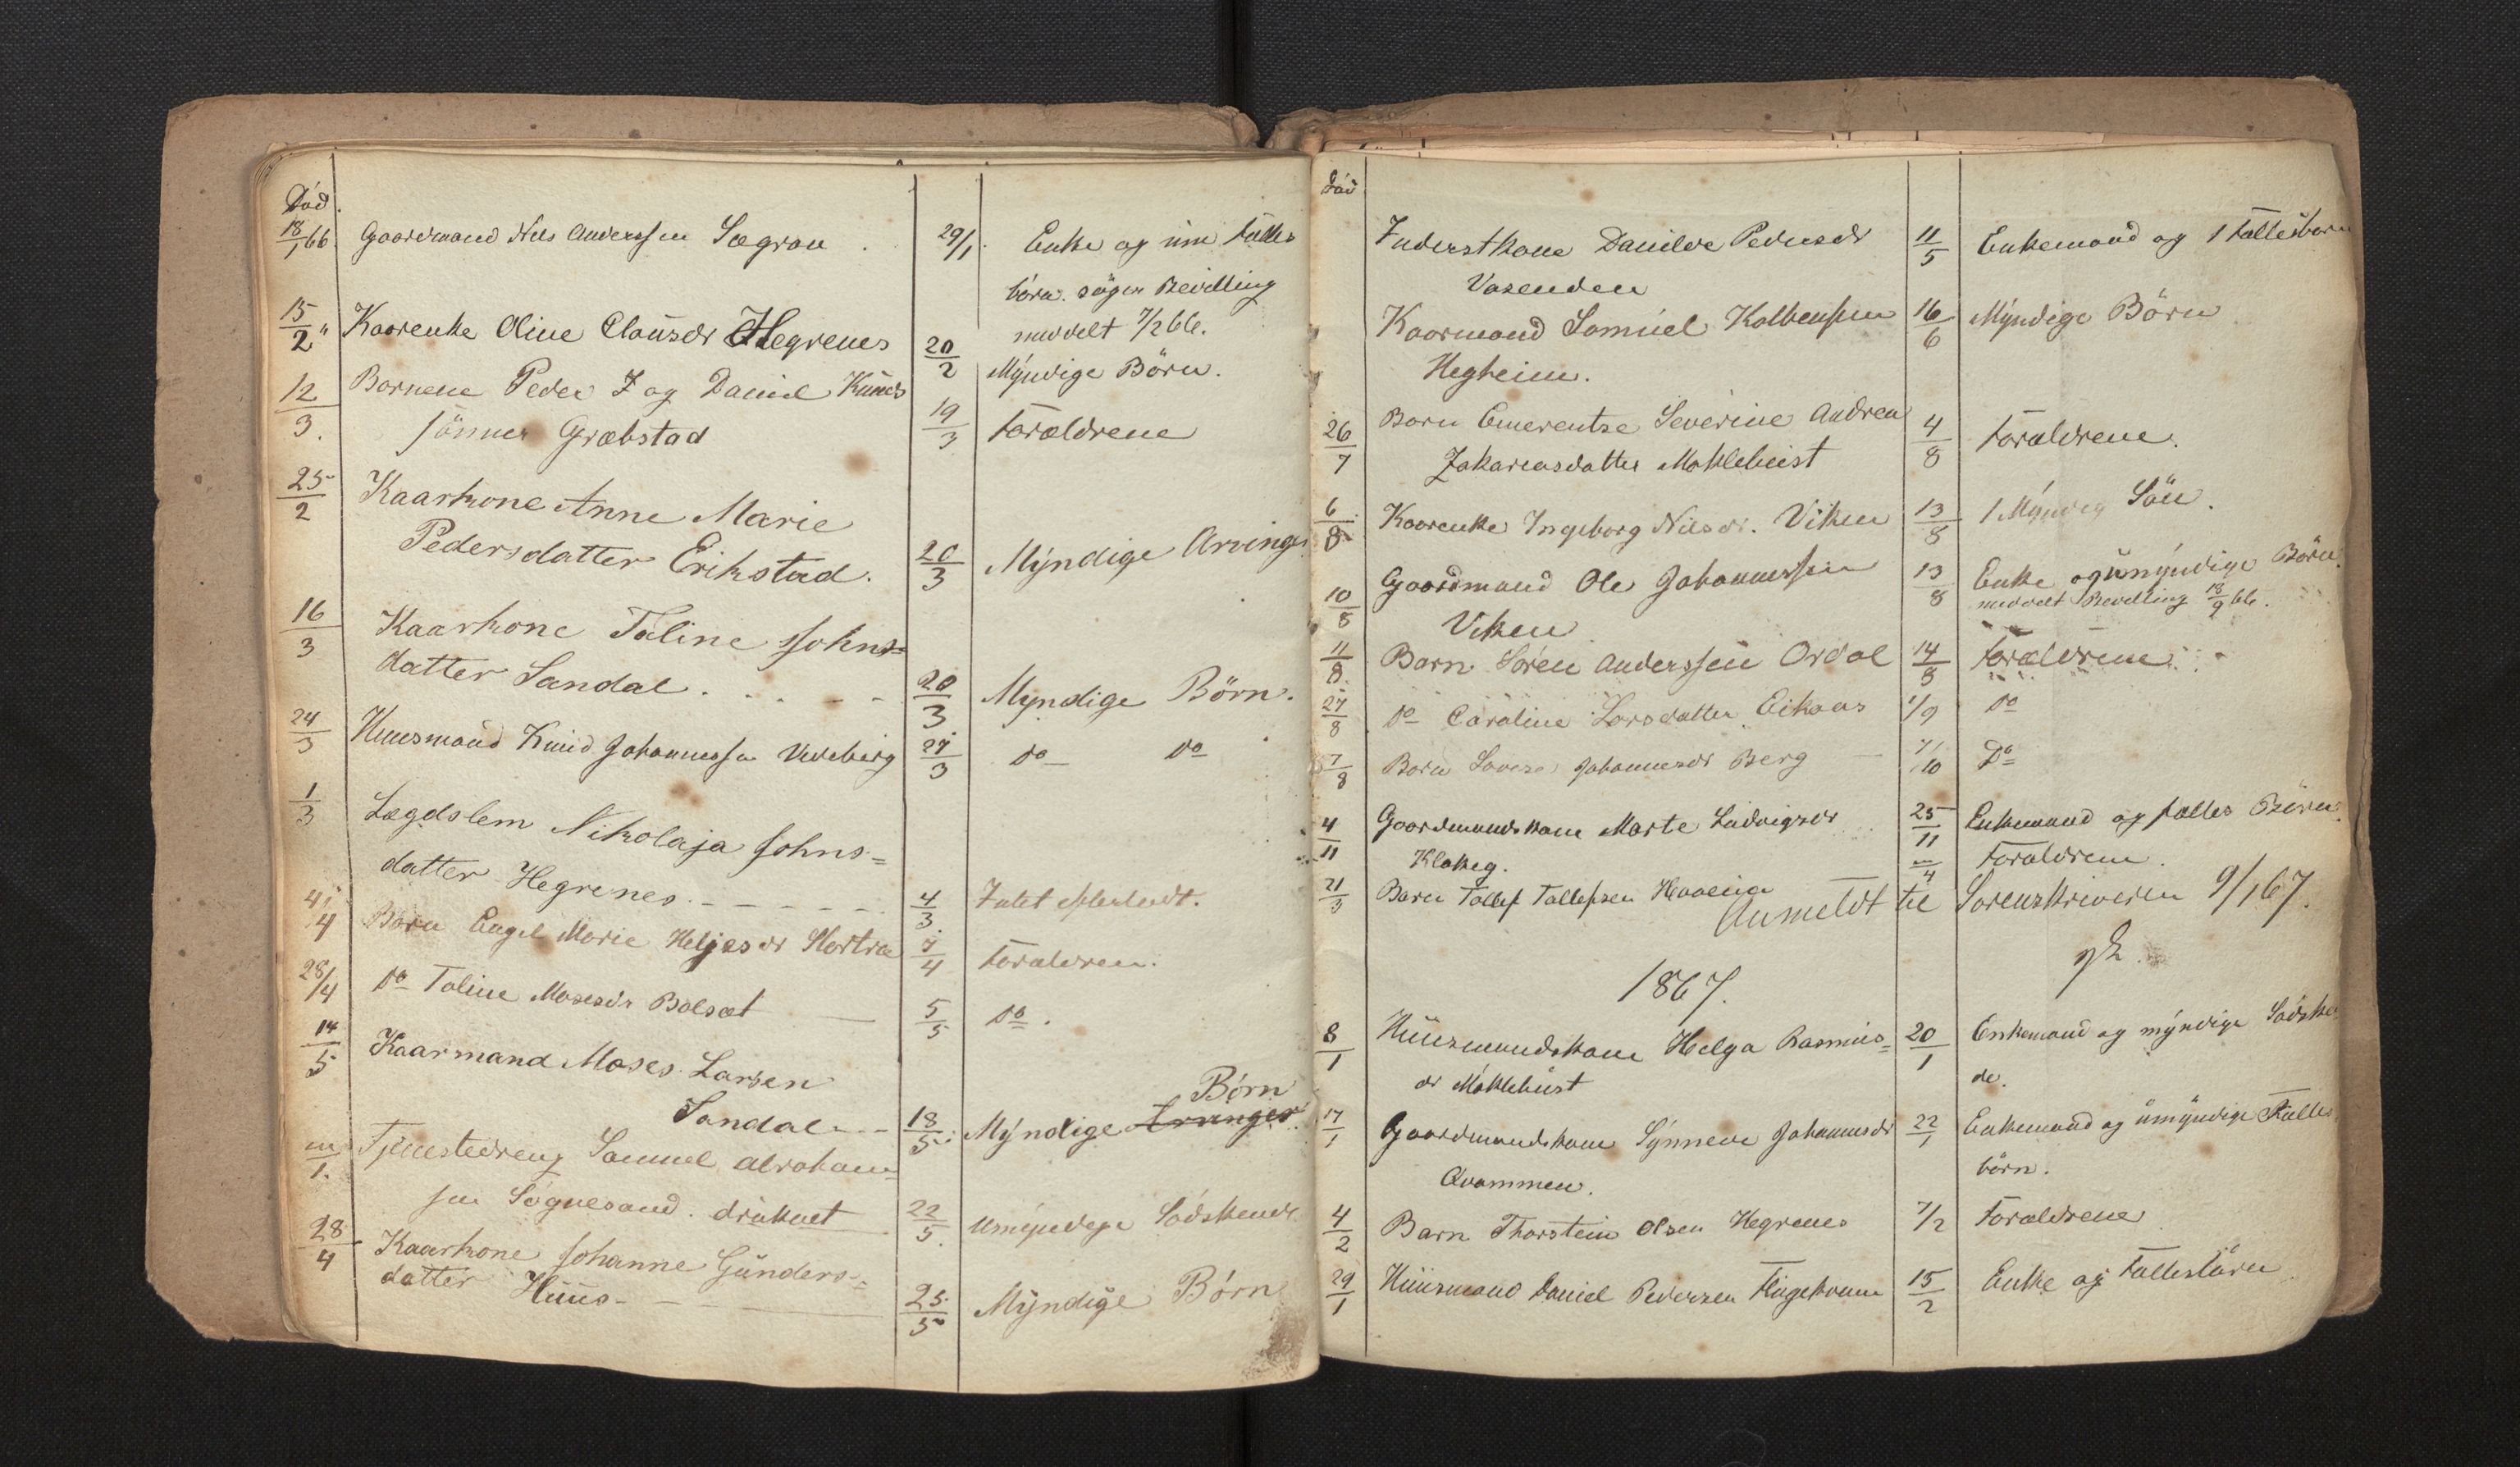 Död.
18/1 66. Gaardmand Nils Anderssen Sægrov . 29/1. Enke og um. fælles
börn. söger Bevilling
meddelt 7/2 66.
15/2 " Kaarenke Oline Clausdr Hegrenes 20/2 Mÿndige Börn.
12/3. Bornene Peder J og Daniel Knuds
sönner Græbstad 19/3 Forældrene
25/2 Kaarkone Anne Marie
Pedersdatter Erikstad. 20/3 Mÿndige Arvinger
16/3 Kaarkone Taline Johns=
datter Sandal . . . - - 20/3 Myndige Börn.
24/3 Huusmand Knud Johannessen Vedeberg 27/3 do do
1/3 Lægdslem Nikolaja Johns=
datter Hegrenes. - - - - - 4/3. Intet efterladt.
4/4 Barn Engel Marie Helgesdr Stortræ 7/4 Forældren.
28/4 do Taline Mosesdr Bolsæt 5/5 do.
14/5 Kaarmand Moses Larsen
Sandal - - 18/5. Mÿndige Arvinger Börn
m/1. Tjenestedreng Samuel Abraham=
sen Sögnesand. druknet 22/5. umÿndige Södskende
28/4 Kaarkone Johanne Gunders=
datter Huus - - 25/5 Mÿndige Börn
Död
Inderstkone Danilde Pedersdr 11/5 Enkemand og 1 Fællesbarn
Vasenden
Kaarmand Samuel Kolbensen 16/6 Mÿndige Börn
Hegheim.
26/7 Barn Emerentse Severine Andrea 4/8 Forældrene.
Zakariasdatter Moklebust
6/8 Kaarenke Ingeborg Nilsdr. Viken 13/8 1 Mÿndig Sön.
10/8 Gaardmand Ole Johannessen 13/8 Enke og umÿndige Börn.
meddelt Bevilling 18/9 66.
Viken
11/8. Barn Sören Anderssen Ordal 14/8 Forældrene.
27/8 do Caroline Larsdatter Eikaas 1/9 do
7/8 Barn Lovise Johannesdr Berg 7/10 Do
4/11 Gaardmandskone Marte Ludvigsdr 25/11 Enkemand og fælles Börn.
Klakeg.
21/3 Barn Tollef Tollefsen m/4 Forældrene.
Anmeldt til Sorenskriveren 9/1 67.
1867.
8/1 Huusmandskone Helga Rasmus= 20/1 Enkemand og mÿndige Södsken
dr Moklebust de.
17/1 Gaardmandskone Sÿnneve Johannesdr 22/1 Enkemand og umÿndige Fælles
Qvammen. börn.
4/2 Barn Thorstein Olsen Hegrenes 7/2 Forældrene
29/1 Huusmand Daniel Pedersen Flugekvam 15/2 Enke og Fællesbörn